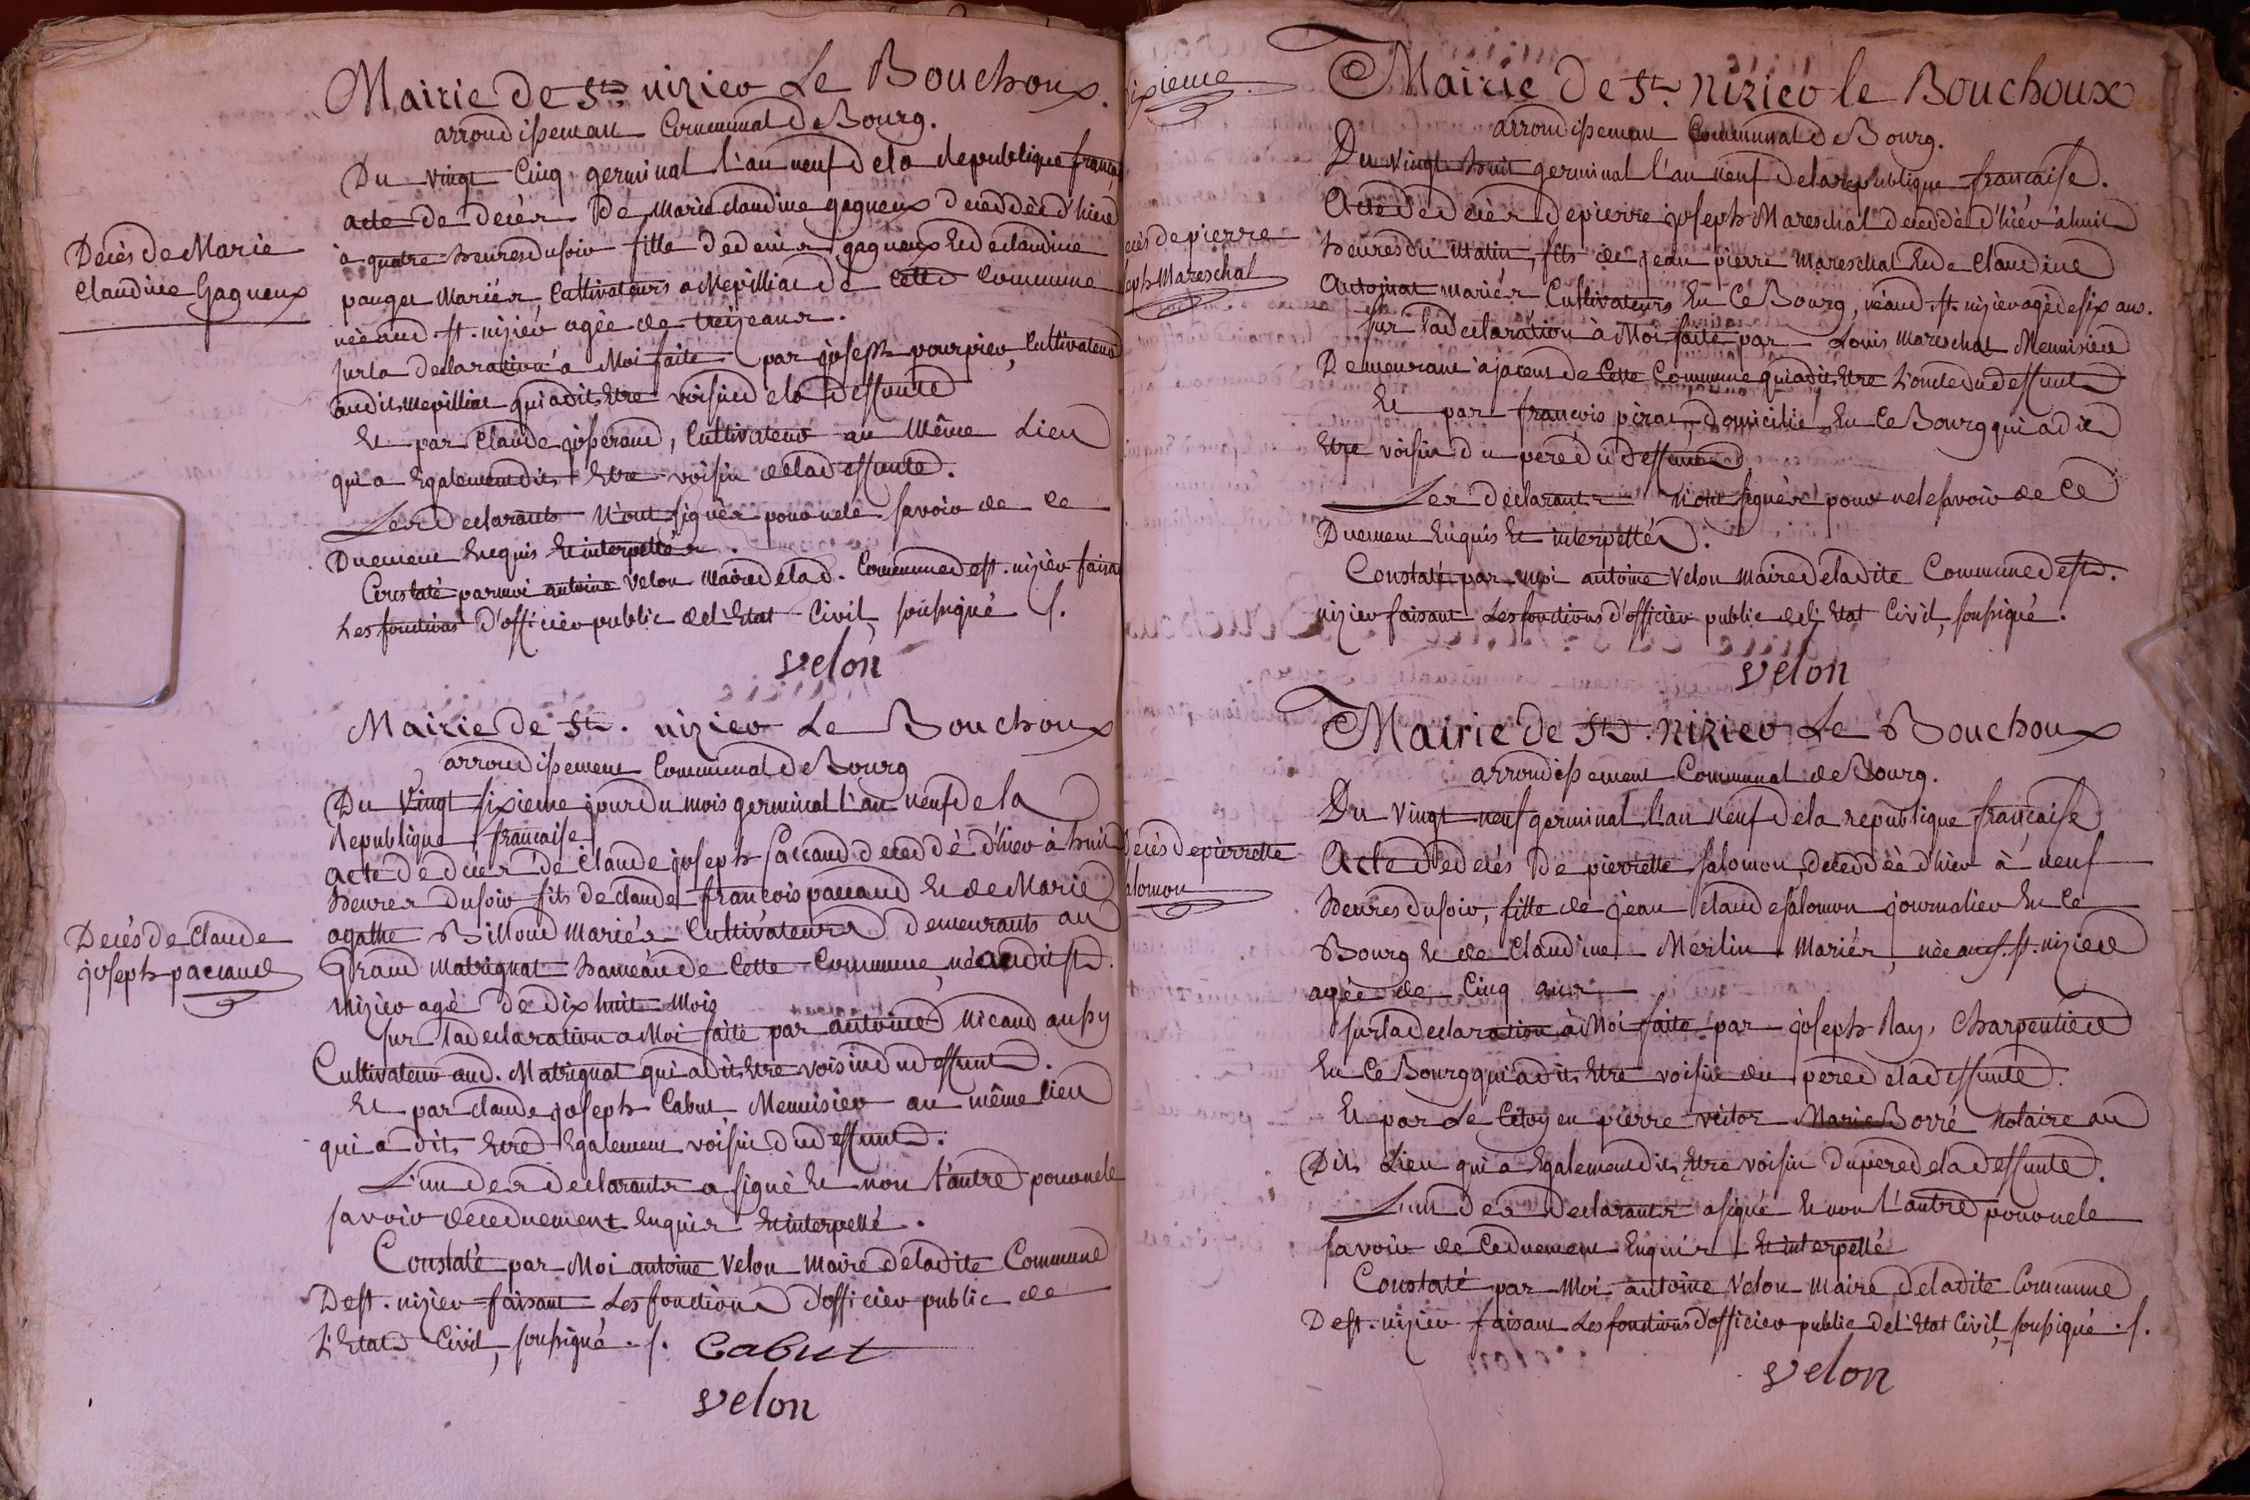 Mairie de St. nizier Le Bouchoux.
arrondissement Communal de Bourg.
Du vingt Cinq germinal l'an neuf de la republique françai
acte de décès de Marie claudine gagneux deceddée d'hier
à quatre heures du soir fille de denis gagneux Et de claudine
Decès de Marie
Claudine Gagneux
pauget Mariés, Cultivateurs a Mepilliat de cette commune
née aud. st. nizier agée de treize ans.
sur la declaration à Moi faite par joseph pourpier, Cultivateur
audit Mepilliat qui a dit Etre voisin de la deffunte
Et par Claude josserand, Cultivateur au Même Lieu
qui a Egalement dit Etre voisin de la deffunte.
Les declarants N'ont signés pour ne le savoir de ce
Duement Enquis Et interpellés.
Constaté par moi antoine Velon Maire de lad. Commune de st. nizier faisa
Les fonctions d'officier public de l'Etat Civil, soussigné s.
velon
Mairie de St. nizier Le Bouchoux
arrondissement Communal de Bourg
Du Vingt sixieme jour du mois germinal l'an neuf de la
Republique française
acte de décès de Claude joseph paccaud decedé d'hier à huit
heures du soir fils de claude francois paccaud Et de Marie
agathe Billoud mariés Cultivateurs demeurants au
Decès de Claude
joseph paccaud
Grand Matrignat hameau de Cette Commune, né audit st.
nizier agé de dix huit Mois
sur la declaration a Moi faite par antoine Nicaud aussy
Cultivateur aud. Matrignat qui a dit Etre voisin du deffunt.
Et par claude joseph Cabut Menuisier au même lieu
qui a dit Etre Egalement voisin du deffunt.
L'un des declarants a signé Et non l'autre pour ne le
savoir de ce duement Enquis Et interpellé.
Constaté par Moi antoine Velon maire de ladite Commune
De st. nizier faisant Les fonctions d'officier public de
L'Etat Civil, soussigné. s. Cabut
velon
ixieme
Mairie de St. Nizier le Bouchoux
arrondissement Communal de Bourg.
Du vingt huit germinal l'an neuf de la republique francaise.
Acte de décès de pierre joseph Mareschal decedé d'hier à huit
ecès de pierre
seph Mareschal
heures du Matin, fils de jean pierre Mareschal Et de Claudine
Antoinat mariés Cultivateurs En Ce Bourg, né aud. st. nizier agé de six ans.
sur la declaration à Moi faite par Louis Mareschal Menuisier
Demeurant à jacens de Cette Commune qui a dit Etre L'oncle du deffunt
Et par francois pirat, domicilié En Ce Bourg qui a dit
Etre voisin du pere du deffunt.
Les declarants N'ont signés pour ne le savoir de Ce
Duement Enquis Et interpellés.
Constaté par moi antoine Velon maire de ladite Commune de st.
nizier faisant Les fonctions d'officier public de l'Etat Civil, soussigné.
velon
Mairie de St. Nizier Le Bouchoux
arrondissement Communal de Bourg.
Du vingt neuf germinal l'an Neuf de la republique francaise
Decès de pierrette
alomon
Acte de decés De pierrette salomon decedée d'hier à neuf
heures du soir, fille de jean claude salomon journalier En Ce
Bourg Et de Claudine Merlin Mariés, née aud. st. nizier
agée de Cinq ans
sur la declaration à Moi faite par joseph Ray, Charpentier
En Ce Bourg qui a dit Etre voisin du pere de la deffunte.
Et par Le Citoyen pierre victor Marie Borré Notaire au
Dit Lieu qui a Egalement dit Etre voisin du pere de la deffunte.
L'un des declarants a signé Et non l'autre pour ne le
savoir de Ce duement Enquis Et interpellé
Constaté par Moi antoine Velon maire de ladite Commune
De st. nizier faisant Les fonctions d'officier public de l'Etat Civil, soussigné. s.
velon